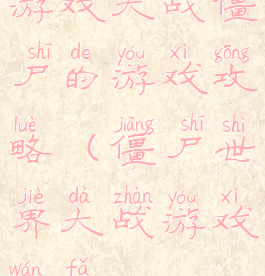 游戏大战僵
shī de yóu xì gōng
尸的游戏攻
lüè jiāng shī shì
略（僵尸世
jiè dà zhàn yóu xì
界大战游戏
wán fǎ